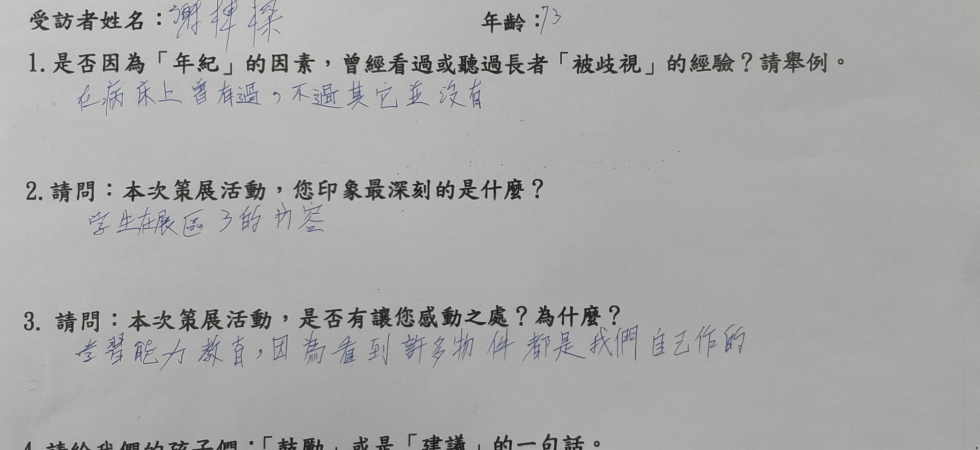 受訪者姓名：謝 年齡：73
1.是否因為「年紀」的因素，曾經看過或聽過長者「被歧視」的經驗？請舉例。
在病床上曾有過，不過其它並沒有
2.請問：本次策展活動，您印象最深刻的是什麼？
学生在展區3的內容
3. 請問：本次策展活動，是否有讓您感動之處？為什麼？
学習能力教育，因為看到許多物件都是我們自己作的
4.請給我們的孩子們：「鼓勵」或是「建議」的一句話。